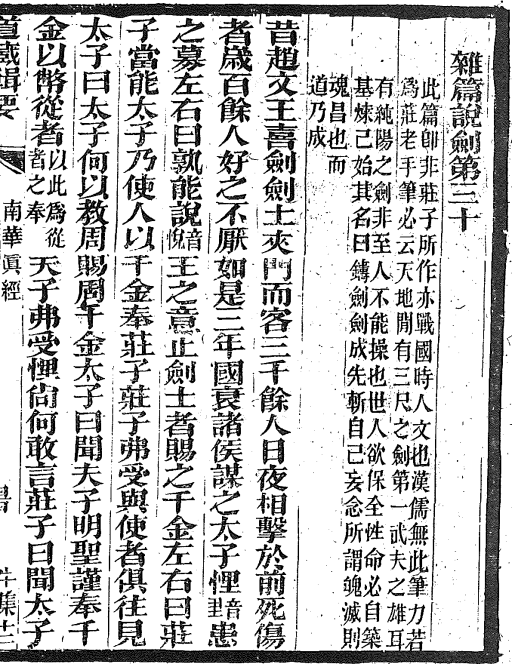 雜篇說劍第三十
此篇卽非莊子所作亦戰國時人文也漢儒無此筆力若
爲莊老手筆必云天地間有三尺之劍第一武夫之雄耳
有純陽之劍非至人不能操也世人欲保全性命必自築
基煉己始其名曰鑄劍劍成先斬自己妄念所謂魄滅則
魂昌也而
道乃成
昔趙文王喜劍劍士夾門而客三千餘人日夜相擊於前死傷
者歲百餘人好之不厭如是三年國衰諸侯謀之太子悝音里患
之募左右曰孰能說音悅王之意止劍士者賜之千金左右曰莊
子當能太子乃使人以千金奉莊子莊子弗受與使者俱往見
太子曰太子何以敎周賜周千金太子曰聞夫子明聖謹奉千
金以幣從者以此爲從者之奉夫子弗受悝尙何敢言莊子曰聞太子
道藏輯要
南華眞經